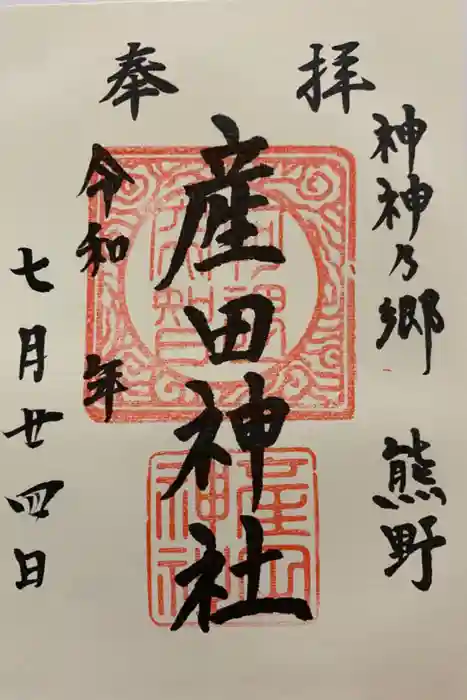 奉拝
神神乃郷 熊野
産田神社
令和 年
七月廿四日
産田神社